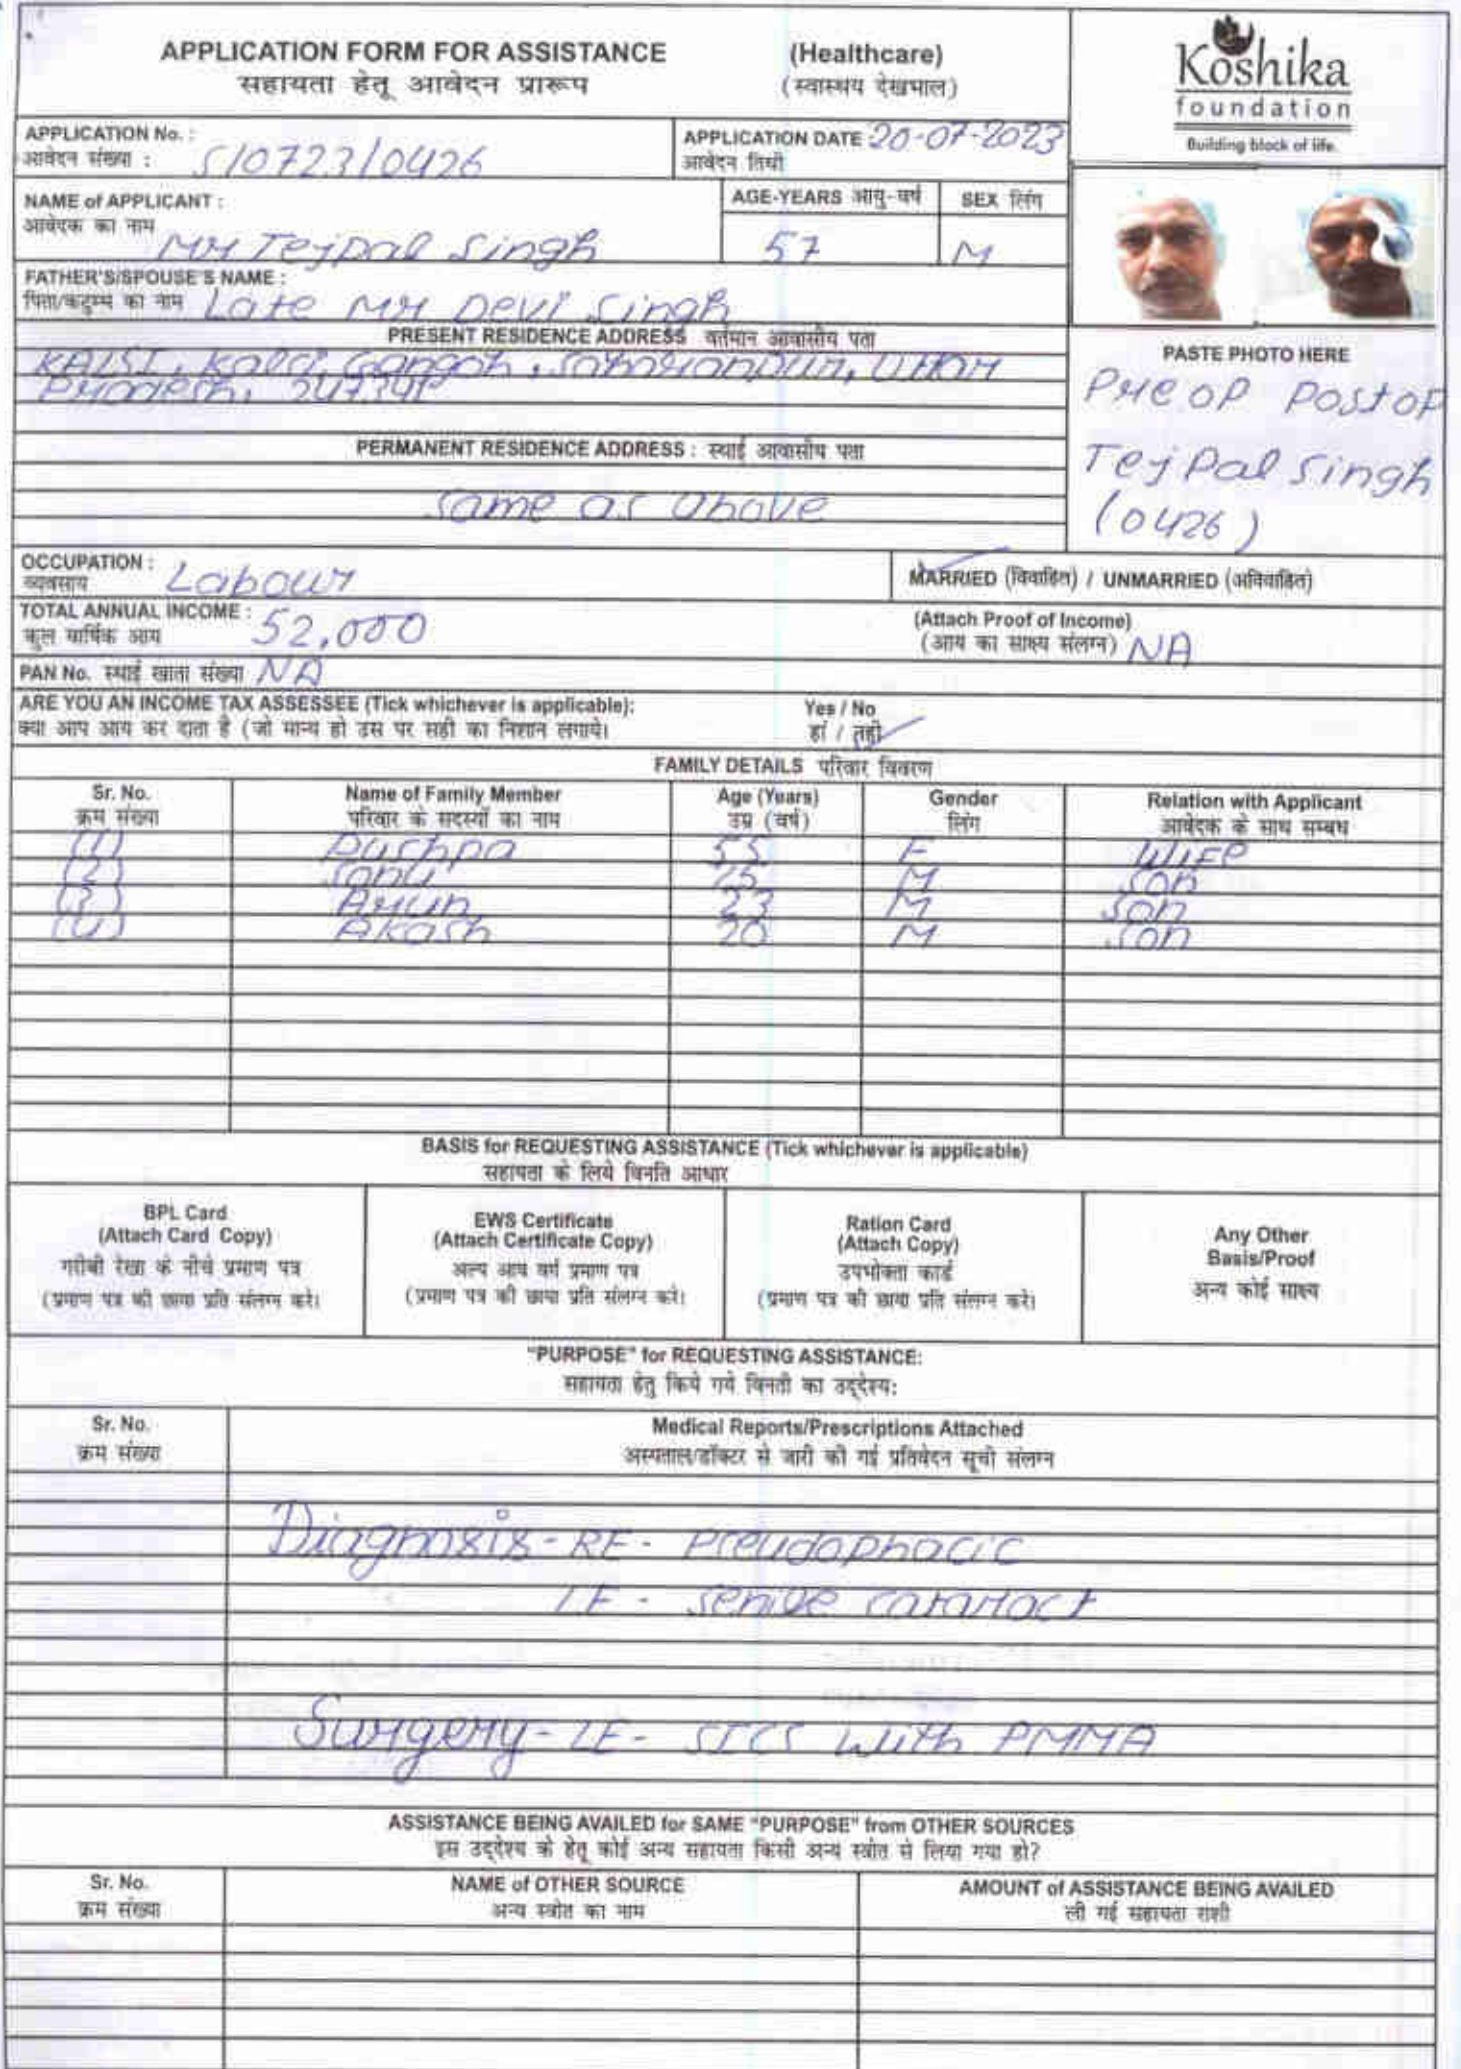 APPLICATION FORM FOR ASSISTANCE (Healthcare)
सहायता हेतू आवेदन प्रारूप (स्वास्थय देखभाल)
Koshika
foundation
Building block of life.
APPLICATION No. :
आवेदन संख्या : S/0723/0426
APPLICATION DATE 20-07-2023
आवेदन तिथी
NAME of APPLICANT :
आवेदक का नाम Mr Tejpal Singh
AGE-YEARS आयु-वर्ष
57
SEX लिंग
M
FATHER'S/SPOUSE'S NAME :
पिता/कटुम्ब का नाम Late Mr Devi Singh
PRESENT RESIDENCE ADDRESS वर्तमान आवासीय पता
KALSI, Kalsi, Gangoh, Saharanpur, Uttar
Pradesh, 247341
PERMANENT RESIDENCE ADDRESS : स्थाई आवासीय पता
same as above
PASTE PHOTO HERE
Pre OP Post OP
Tej Pal Singh
(0426)
OCCUPATION :
व्यवसाय Labour
MARRIED (विवाहित) / UNMARRIED (अविवाहित)
TOTAL ANNUAL INCOME :
कुल वार्षिक आय 52,000
(Attach Proof of Income)
(आय का साक्ष्य संलग्न) NA
PAN No. स्थाई खाता संख्या NA
ARE YOU AN INCOME TAX ASSESSEE (Tick whichever is applicable): Yes / No
क्या आप आय कर दाता है (जो मान्य हो उस पर सही का निशान लगाये। हाँ / नही
FAMILY DETAILS परिवार विवरण
Sr. No. Name of Family Member Age (Years) Gender Relation with Applicant
क्रम संख्या परिवार के सदस्यों का नाम उम्र (वर्ष) लिंग आवेदक के साथ सम्बध
(1) Pushpa 55 F Wife
(2) Sonu M Son
(3) Arun 23 M Son
(4) Akash 20 M Son
BASIS for REQUESTING ASSISTANCE (Tick whichever is applicable)
सहायता के लिये विनति आधार
BPL Card
(Attach Card Copy)
गरीबी रेखा के नीचे प्रमाण पत्र
(प्रमाण पत्र की छाया प्रति संलग्न करे।
EWS Certificate
(Attach Certificate Copy)
अल्प आय वर्ग प्रमाण पत्र
(प्रमाण पत्र की छाया प्रति संलग्न करे।
Ration Card
(Attach Copy)
उपभोक्ता कार्ड
(प्रमाण पत्र की छाया प्रति संलग्न करे।
Any Other
Basis/Proof
अन्य कोई साक्ष्य
"PURPOSE" for REQUESTING ASSISTANCE:
सहायता हेतु किये गये विनती का उद्देश्य:
Sr. No. Medical Reports/Prescriptions Attached
क्रम संख्या अस्पताल/डॉक्टर से जारी की गई प्रतिवेदन सूची संलग्न
Diagnosis - RE - Pseudophacic
LE - senile cataract
Surgery - LE - SICS with PMMA
ASSISTANCE BEING AVAILED for SAME "PURPOSE" from OTHER SOURCES
इस उद्देश्य के हेतू कोई अन्य सहायता किसी अन्य स्त्रोत से लिया गया हो?
Sr. No. NAME of OTHER SOURCE AMOUNT of ASSISTANCE BEING AVAILED
क्रम संख्या अन्य स्त्रोत का नाम ली गई सहायता राशी